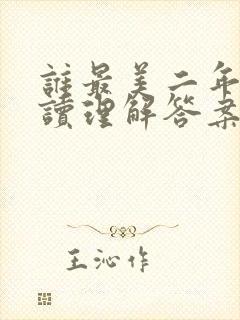 誰最美二年
讀理解答案
王沁作